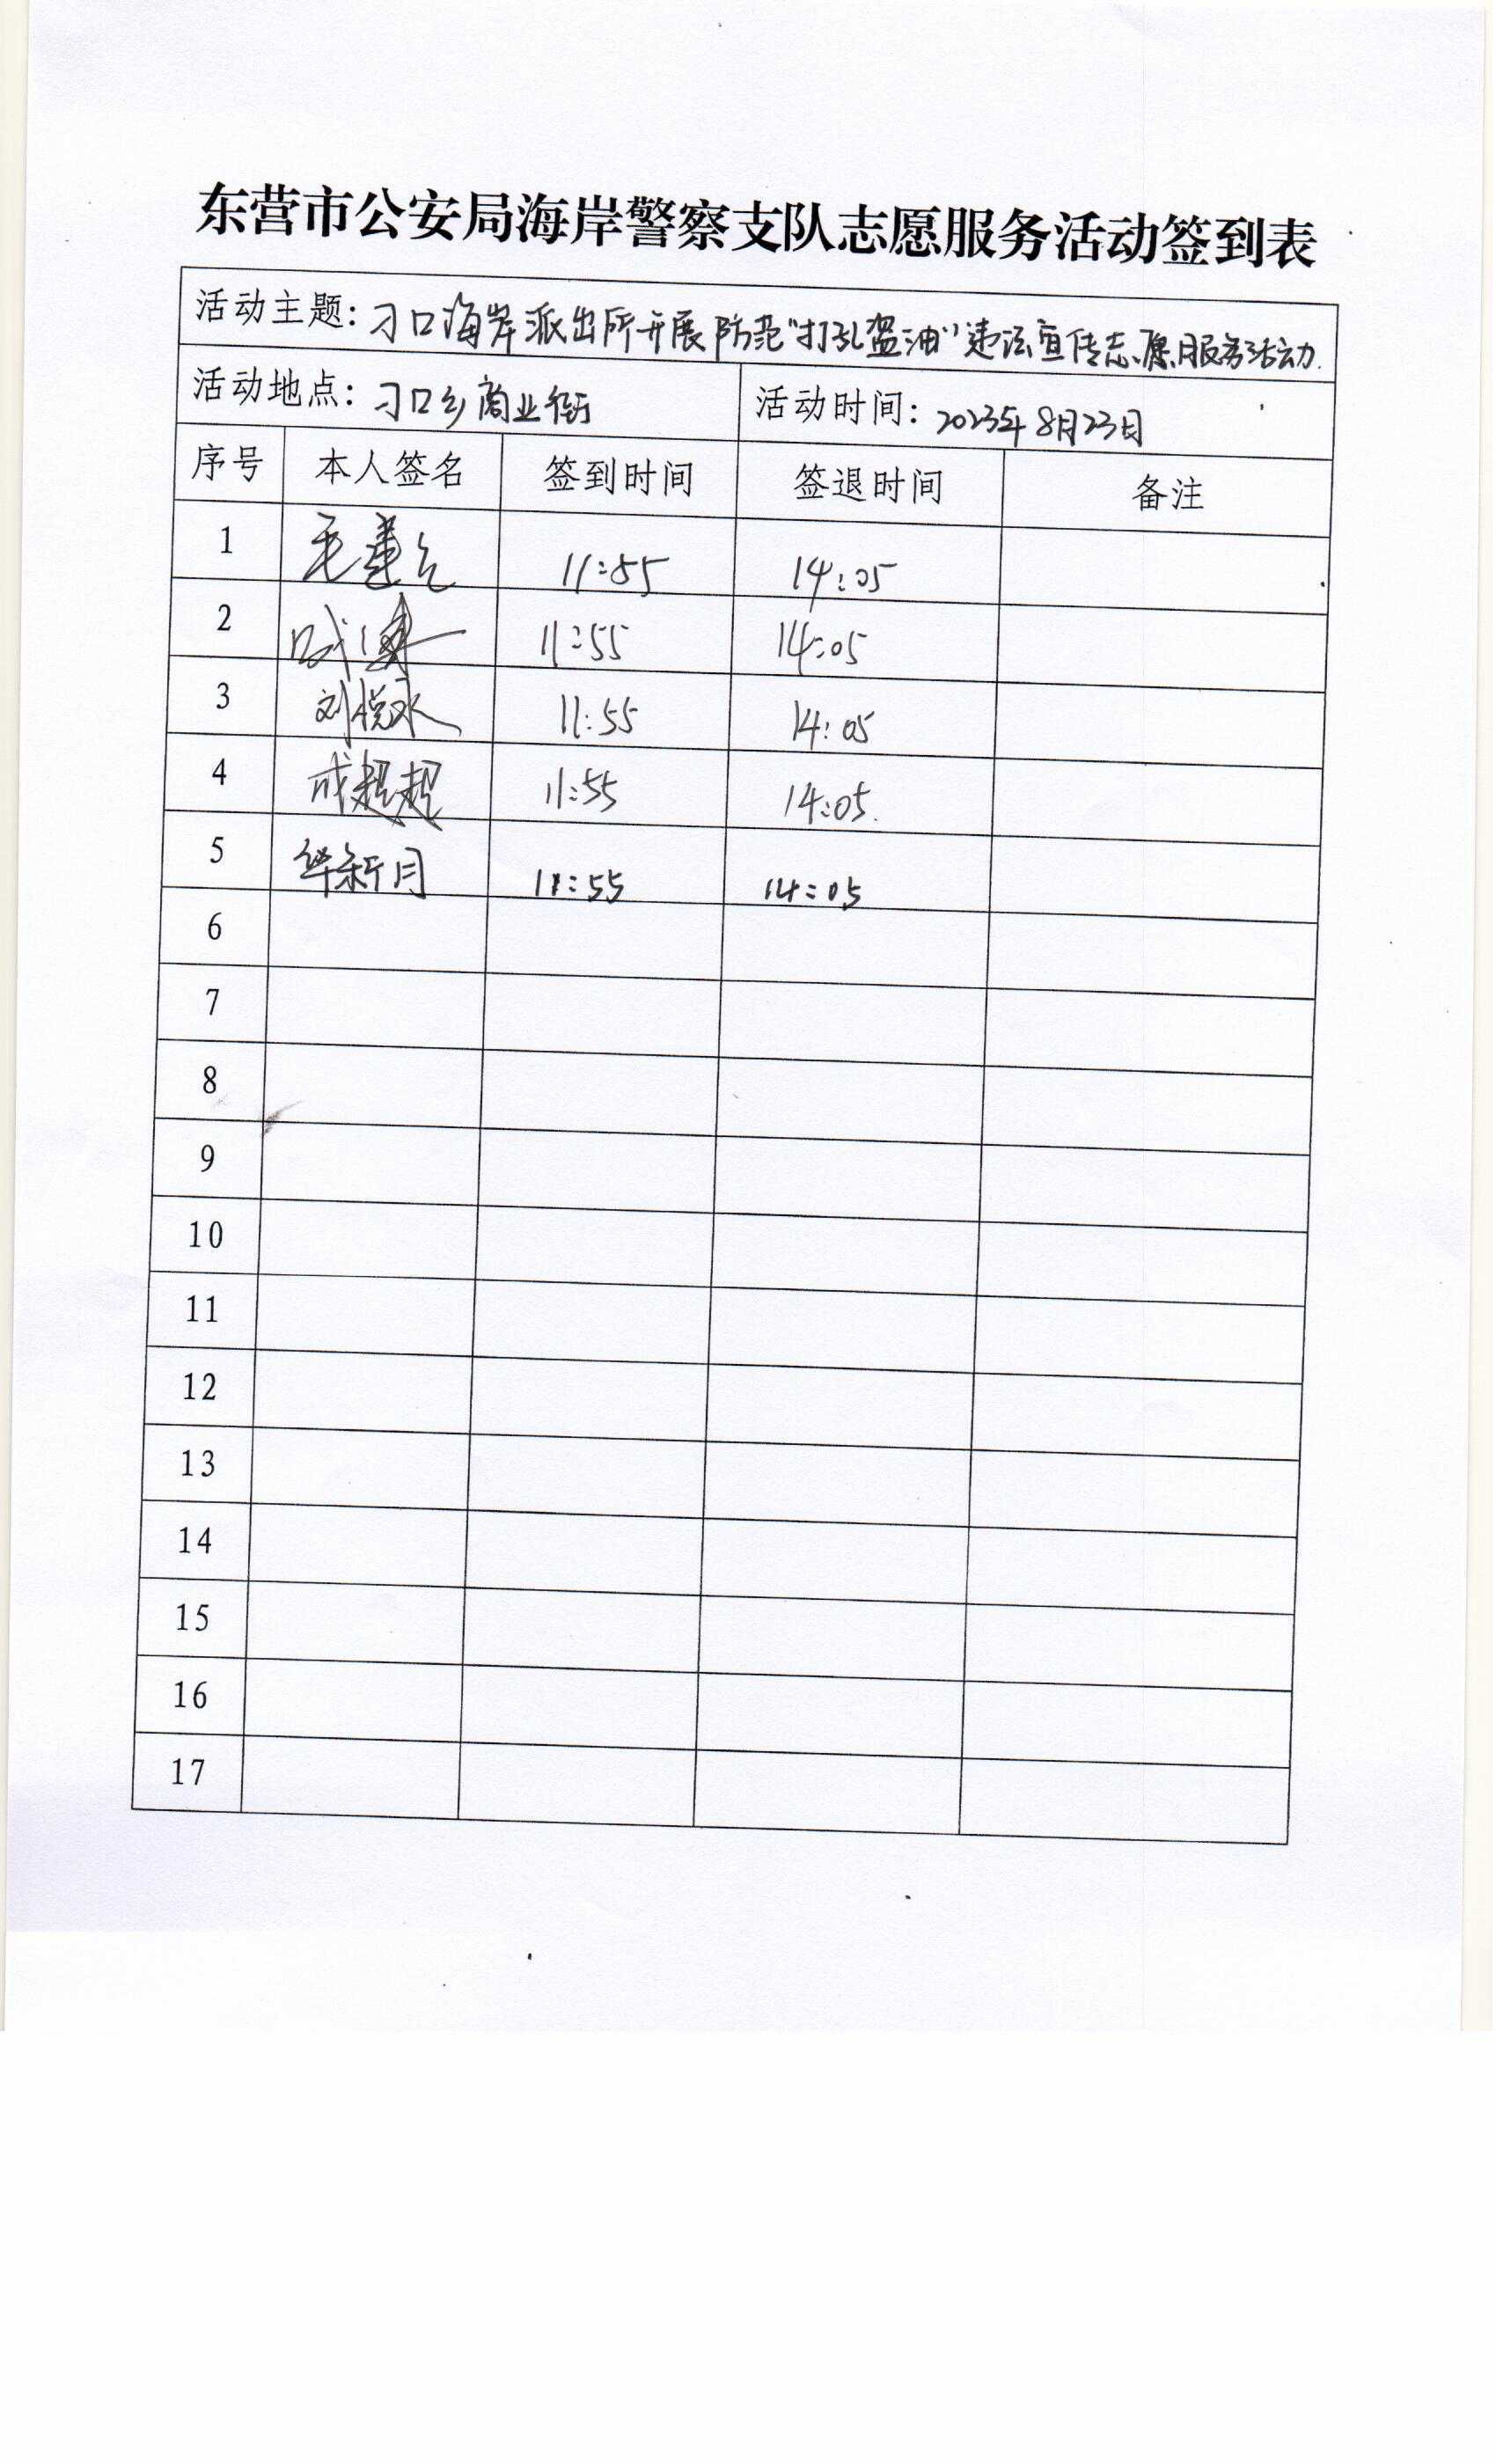 东营市公安局海岸警察支队志愿服务活动签到表
活动主题: 刁口海岸派出所开展防范“打孔盗油”违法宣传志愿服务活动.
活动地点: 刁口乡商业街 活动时间: 2023年8月23日
序号 本人签名 签到时间 签退时间 备注
1 毛 11:55 14:05
2 11:55 14:05
3 刘悦永 11:55 14:05
4 成超超 11:55 14:05.
5 华新月 11:55 14:05
6
7
8
9
10
11
12
13
14
15
16
17